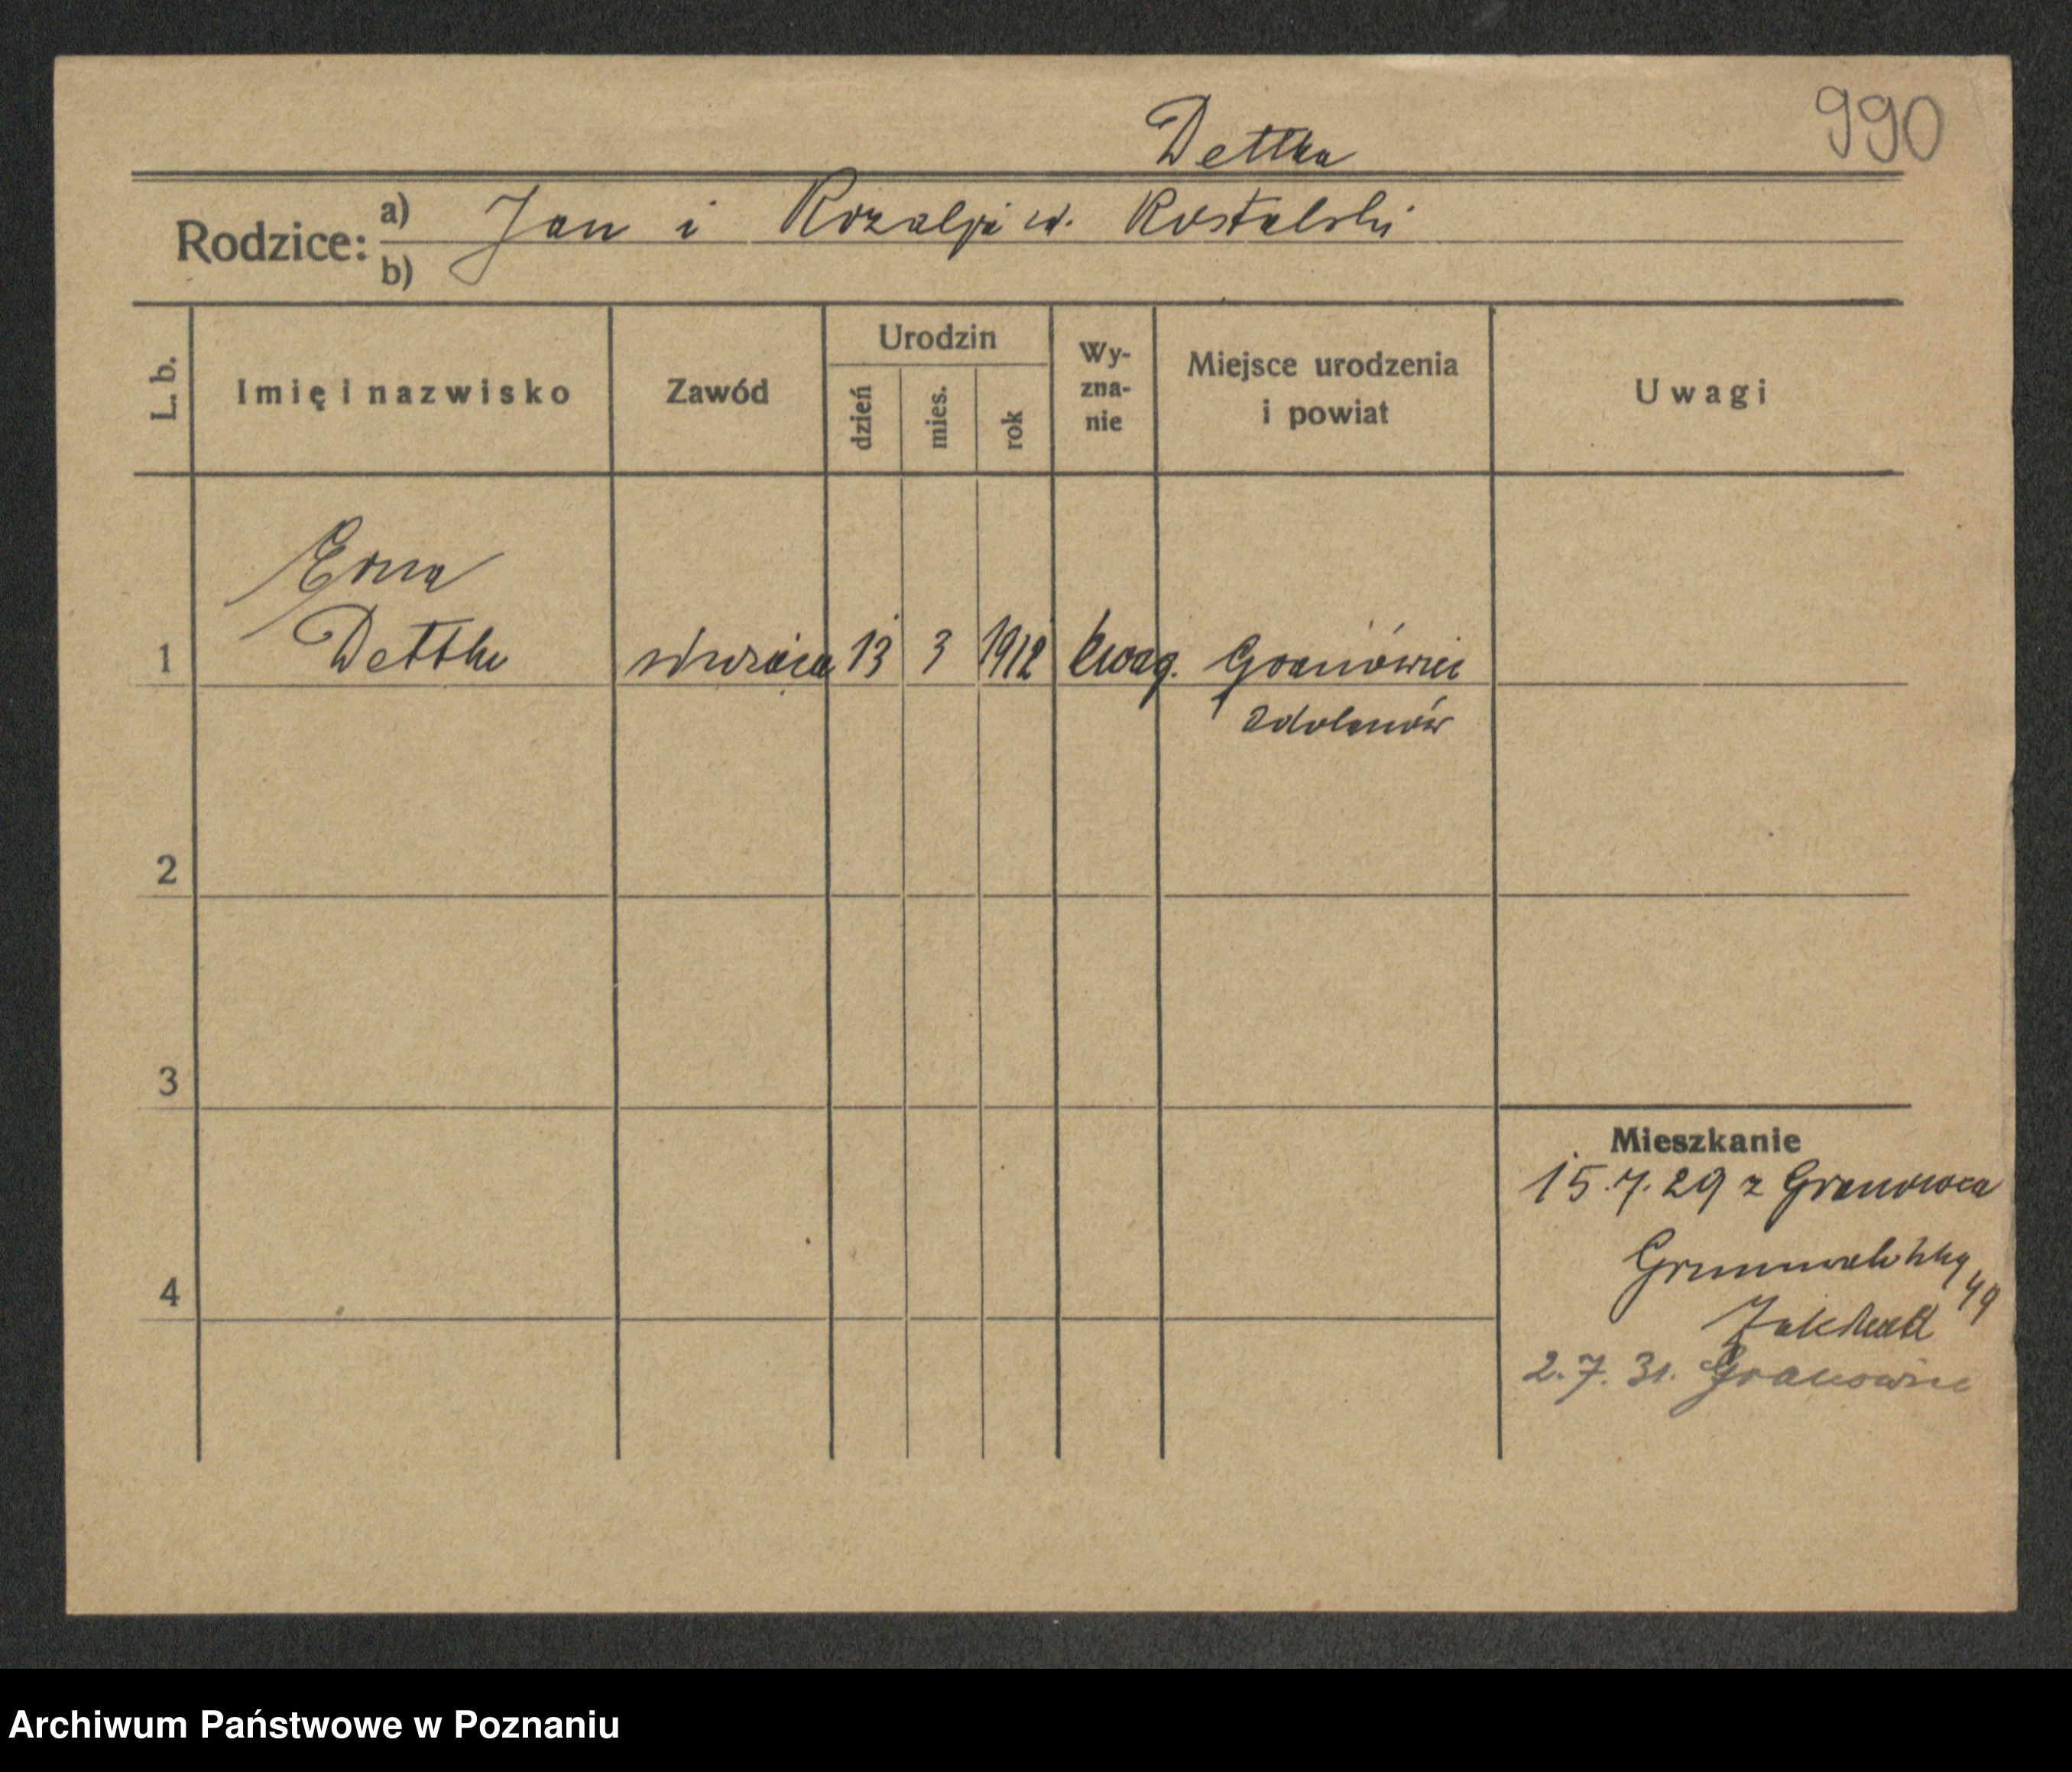 990
Dettka
Rodzice: a) Jan i Rozalja w. Kostalski
b)
L. b.
Imię i nazwisko
Zawód
Urodzin
dzień
mies.
rok
Wy-
zna-
nie
Miejsce urodzenia
i powiat
Uwagi
Erna
1 Dettke 13 3 1912 ewag. Granówiec
Odolanów
2
3
4
Mieszkanie
15.7.29 z Granowca
49
2.7.31. Granowiec
Archiwum Państwowe w Poznaniu